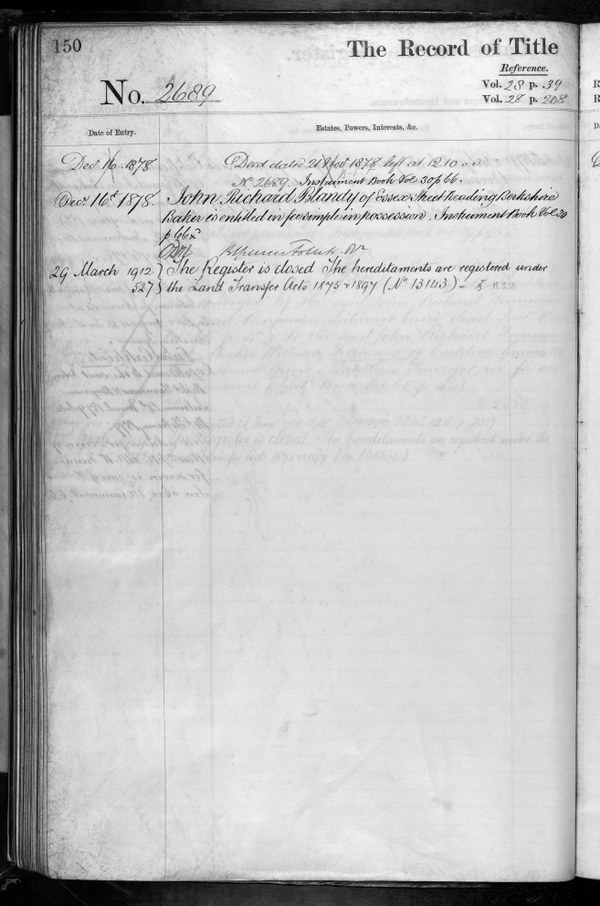 150
The Record of Title
Reference.
No. 2689
Vol. 28 p. 39
Vol. 28 p. 208
Date of Entry.
Estates, Powers, Interests, &c.
Dec. 16. 1878
Deed dated 21 Nov 1878 left at 12.10
No 2689. Instrument Book Vol 30 p 66.
Decr. 16th 1878.
John Richard Blandy of Essex Street Reading Berkshire
Baker is entitled in fee simple in possession. Instrument Book Vol 30
p 66
29 March 1912
The Register is closed The hereditaments are registered under
527
the Land Transfer Acts 1875 & 1897 (No 13143)